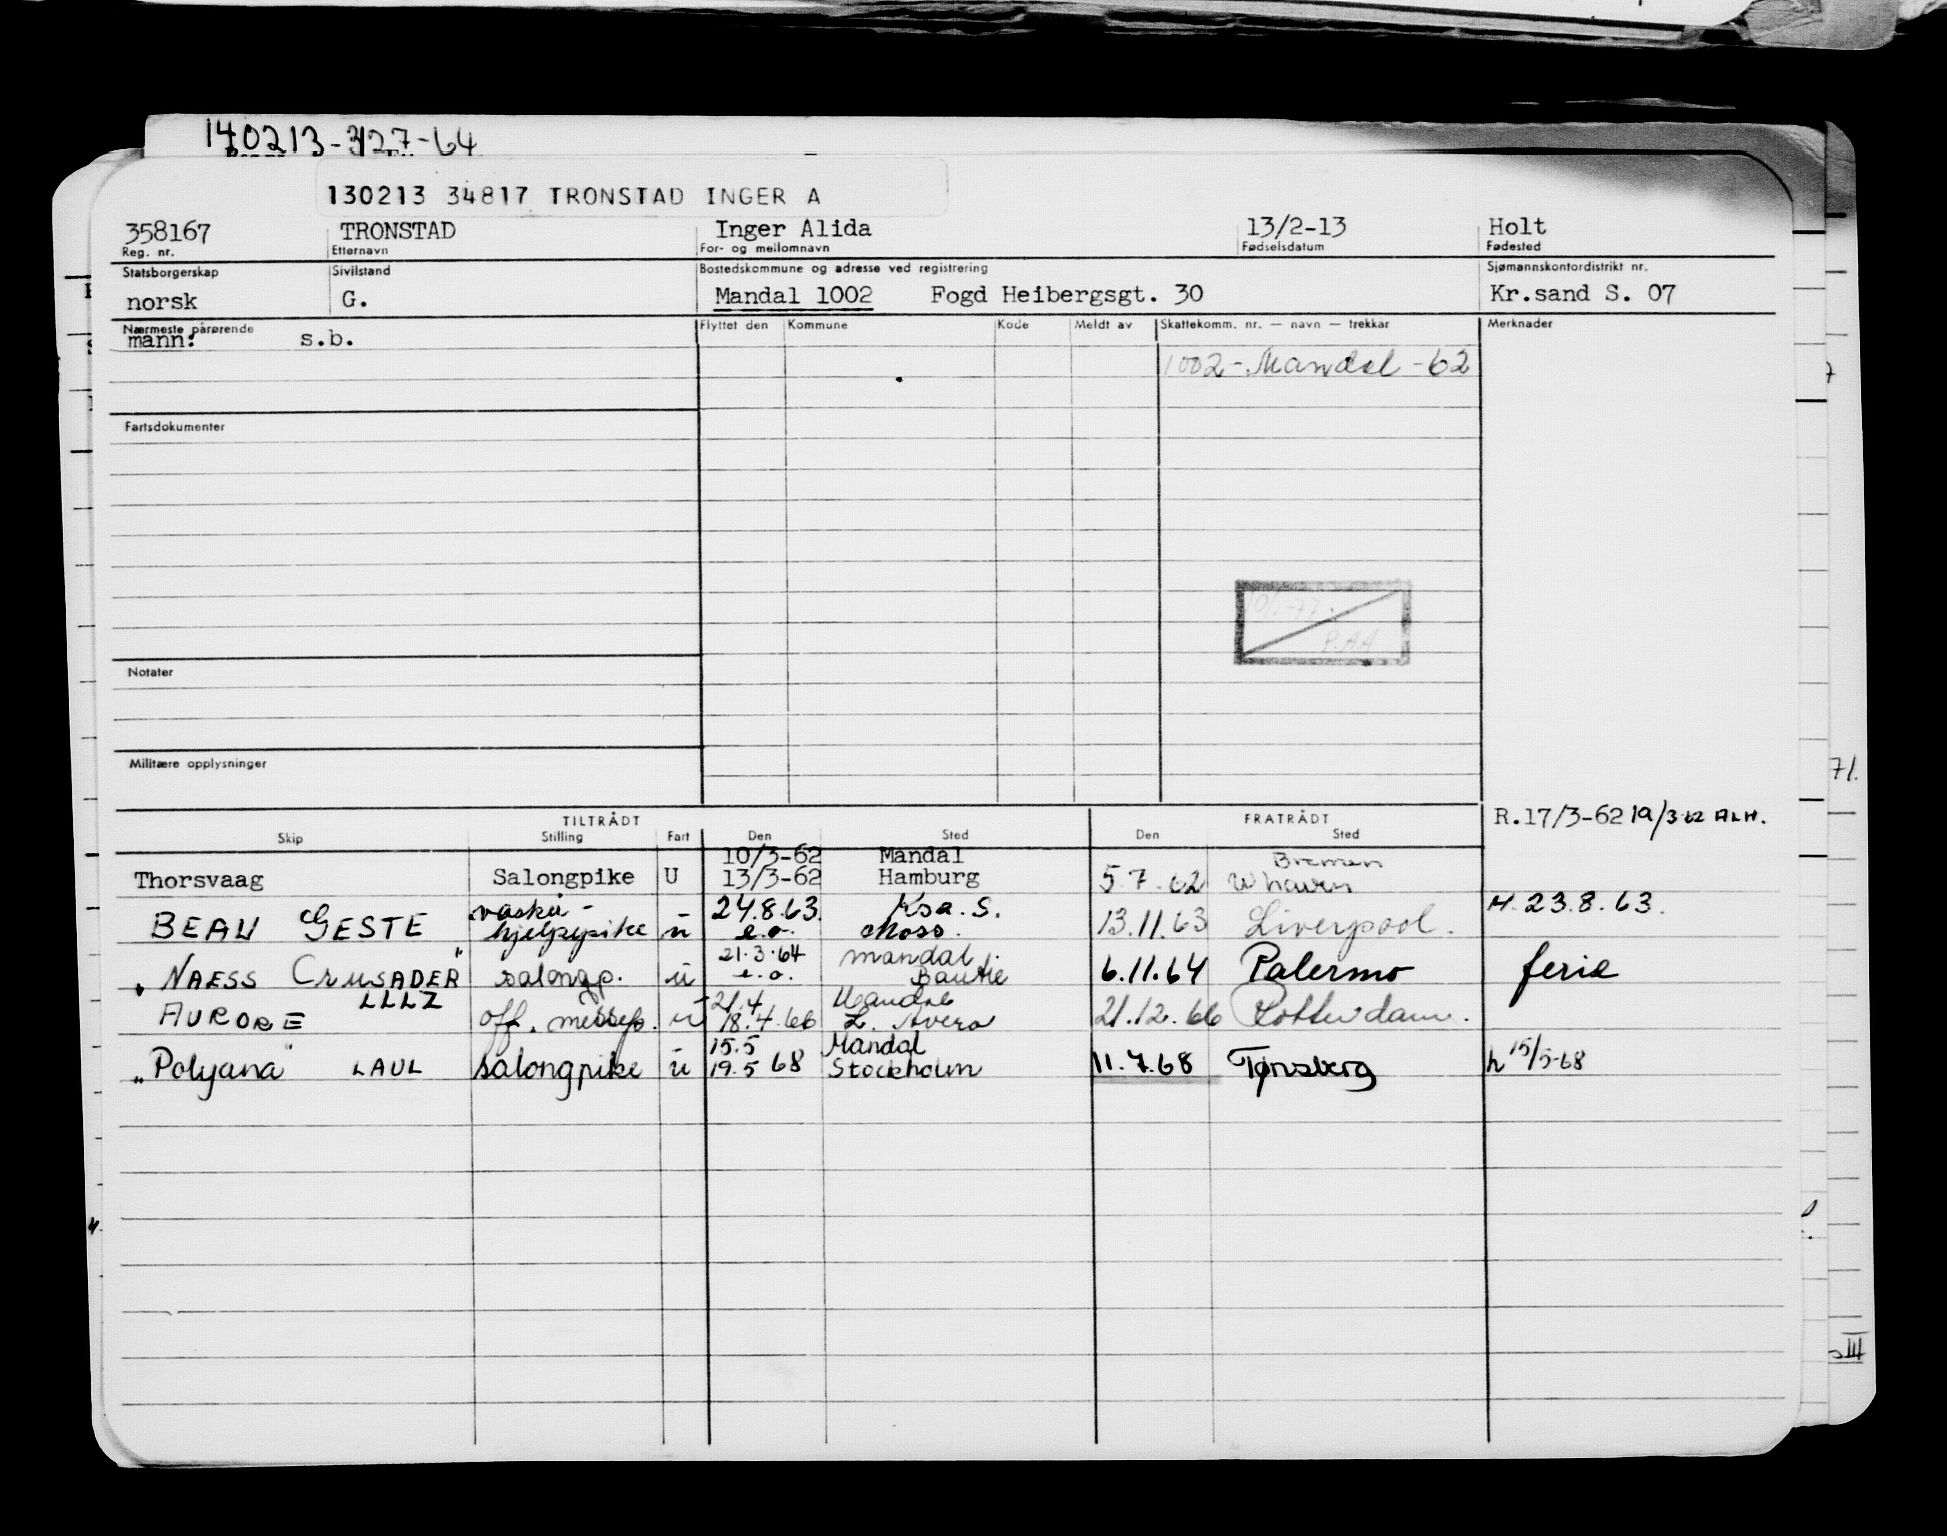 140213-327-64
130213 34817 TRONSTAD INGER A
358167 TRONSTAD Inger Alida 13/2-13 Holt
Reg. nr. Etternavn For- og mellomnavn Fødselsdatum Fødested
Statsborgerskap Sivilstand Bostedskommune og adresse ved registrering Sjømannskontordistrikt nr.
norsk G. Mandal 1002 Fogd Heibergsgt. 30 Kr.sand S. 07
Nærmeste pårørende Flyttet den Kommune Kode Meldt av Skattekomm. nr. — navn — trekkar Merknader
mann: s.b.
1002-Mandal-62
Fartsdokumenter
P.AA
Notater
Militære opplysninger
TILTRÅDT FRATRÅDT R.17/3-62 19/3 62 ALH.
Skip Stilling Fart Den Sted Den Sted
10/3-62 Mandal Bremen
Thorsvaag Salongpike U 13/3-62 Hamburg 5.7.62 Whaven
vaske- 24.8.63. Ksa. S. H. 23.8.63.
BEAU GESTE hjelpepike u e.o. Moss. 13.11.63 Liverpool.
21.3.64 Mandal
"NAESS CRUSADER" salongp. u e.o. 6.11.64 Palermo ferie
LLLZ 21.4 Mandal
AURORE off. messep. u 18.4.66 21.12.66 Rotterdam.
15.5 Mandal
"Polyana" LAUL salongpike u 19.5 68 Stockholm 11.7.68 Tønsberg h 15/5-68
71.
III